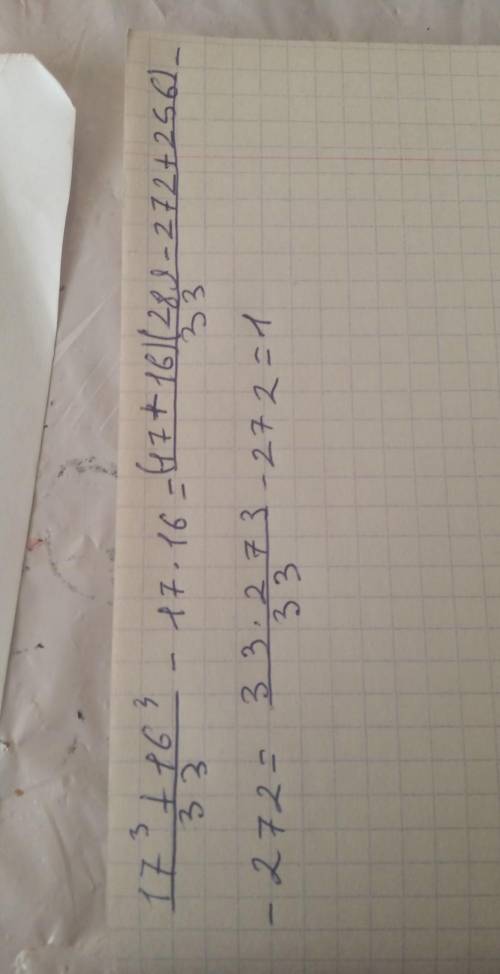 (17³ + 16³)/33 - 17 · 16 = ((17 + 16)(289 - 272 + 256))/33 -
- 272 = (33 · 273)/33 - 272 = 1